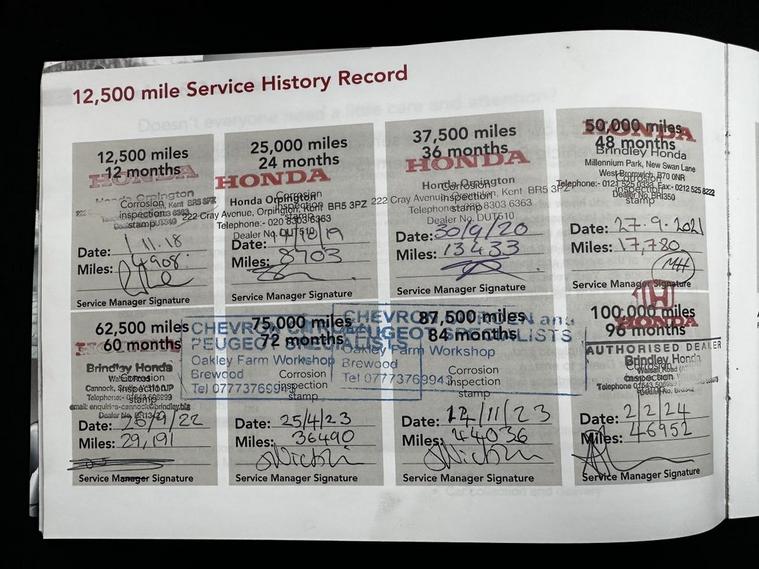 12,500 mile Service History Record
12,500 miles
12 months
HONDA
Honda Orpington
Corrosion
inspection
stamp
Date: 1 11.18
Miles: 4908.
Service Manager Signature
25,000 miles
24 months
HONDA
Honda Orpington
Corrosion
inspection
222 Cray Avenue, Orpington, Kent BR5 3PZ
Telephone:- 020 8303 6363
Dealer No. DUT510
Date: 17/10/19
Miles: 8703
Service Manager Signature
37,500 miles
36 months
HONDA
Honda Orpington
Corrosion
inspection
222 Cray Avenue, Orpington, Kent BR5 3PZ
Telephone:- 020 8303 6363
Dealer No. DUT510
Date: 30/9/20
Miles: 13433
Service Manager Signature
50,000 miles
48 months
HONDA
Brindley Honda
Millennium Park, New Swan Lane
West Bromwich, B70 0NR
Corrosion
inspection
stamp
Date: 27.9.2021
Miles: 17,780
MH
Service Manager Signature
62,500 miles
60 months
Brindley Honda
Corrosion
inspection
stamp
Date: 26/9/22
Miles: 29,191
Service Manager Signature
75,000 miles
72 months
CHEVRON
PEUGEOT SPECIALISTS
Oakley Farm Workshop
Brewood
Corrosion
inspection
stamp
Date: 25/4/23
Miles: 36490
Service Manager Signature
87,500 miles
84 months
CHEVRON CITROEN and
PEUGEOT SPECIALISTS
Oakley Farm Workshop
Brewood
Tel 07773769943
Corrosion
inspection
stamp
Date: 14/11/23
Miles: 44036
Service Manager Signature
100,000 miles
96 months
HONDA
AUTHORISED DEALER
Brindley Honda
Corrosion
inspection
stamp
Date: 2/2/24
Miles: 46952
Service Manager Signature